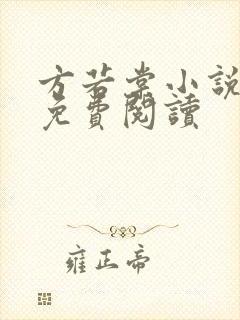 方若堂小說
免費閱讀
雍正帝